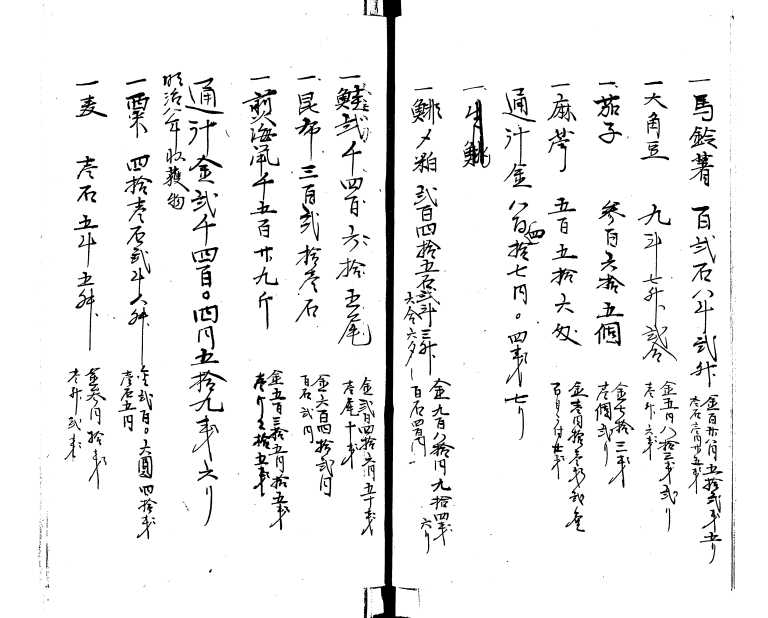 一馬鈴薯 百弐石八斗弐升 金百廿八円五拾弐銭五り
壱石壱円廿五銭
一大角豆 九斗七升弐合 金五円八拾三銭弐り
壱升六銭
一茄子 参百六拾五個 金七拾三銭
壱個弐り
一麻苧 五百五拾六匁 金壱円拾壱銭弐厘
百目ニ付廿銭
通計金八百四拾七円〇四銭七り
一生鯡
一鯡〆粕 弐百四拾五石弐斗三升六合六夕 金九百八拾円九拾四銭六り
百石四百円
一鮭弐千四百六拾五尾 金弐百四拾六円五十銭
壱尾十銭
一昆布三百弐拾壱石 金六百四拾弐円
百石弐百円
一煎海鼠千五百廿九斤 金五百三拾五円拾五銭
壱斤三拾五銭
通計金弐千四百〇四円五拾九銭六り
明治八年収獲物
一粟 四拾壱石弐斗八升 金弐百〇六圓四拾銭
壱石五円
一麦 壱石五斗五升 金参円拾銭
壱升弐銭